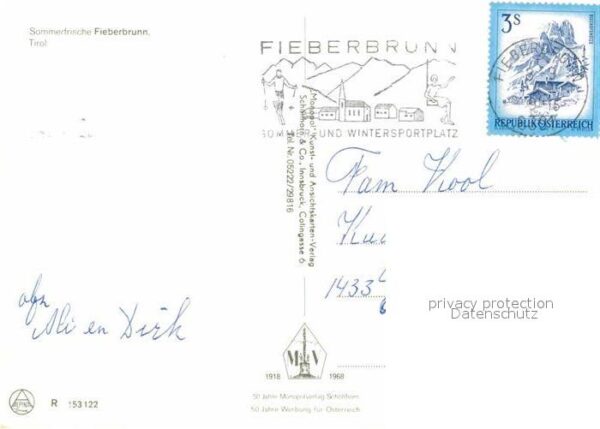 Sommerfrische Fieberbrunn,
Tirol
FIEBERBRUNN
SOMMER- UND WINTERSPORTPLATZ
3S
REPUBLIK ÖSTERREICH
FIEBERBRUNN
„Monopol" Kunst- und Ansichtskarten-Verlag
Schöllhorn & Co., Innsbruck, Colingasse 6
Tel. Nr. 05222/29816
Fam Kool
1433
privacy protection
Datenschutz
afz
Ali en Dirk
M V
1918 1968
50 Jahre Monopolverlag Schöllhorn
50 Jahre Werbung für Österreich
ALPINA
R 153122